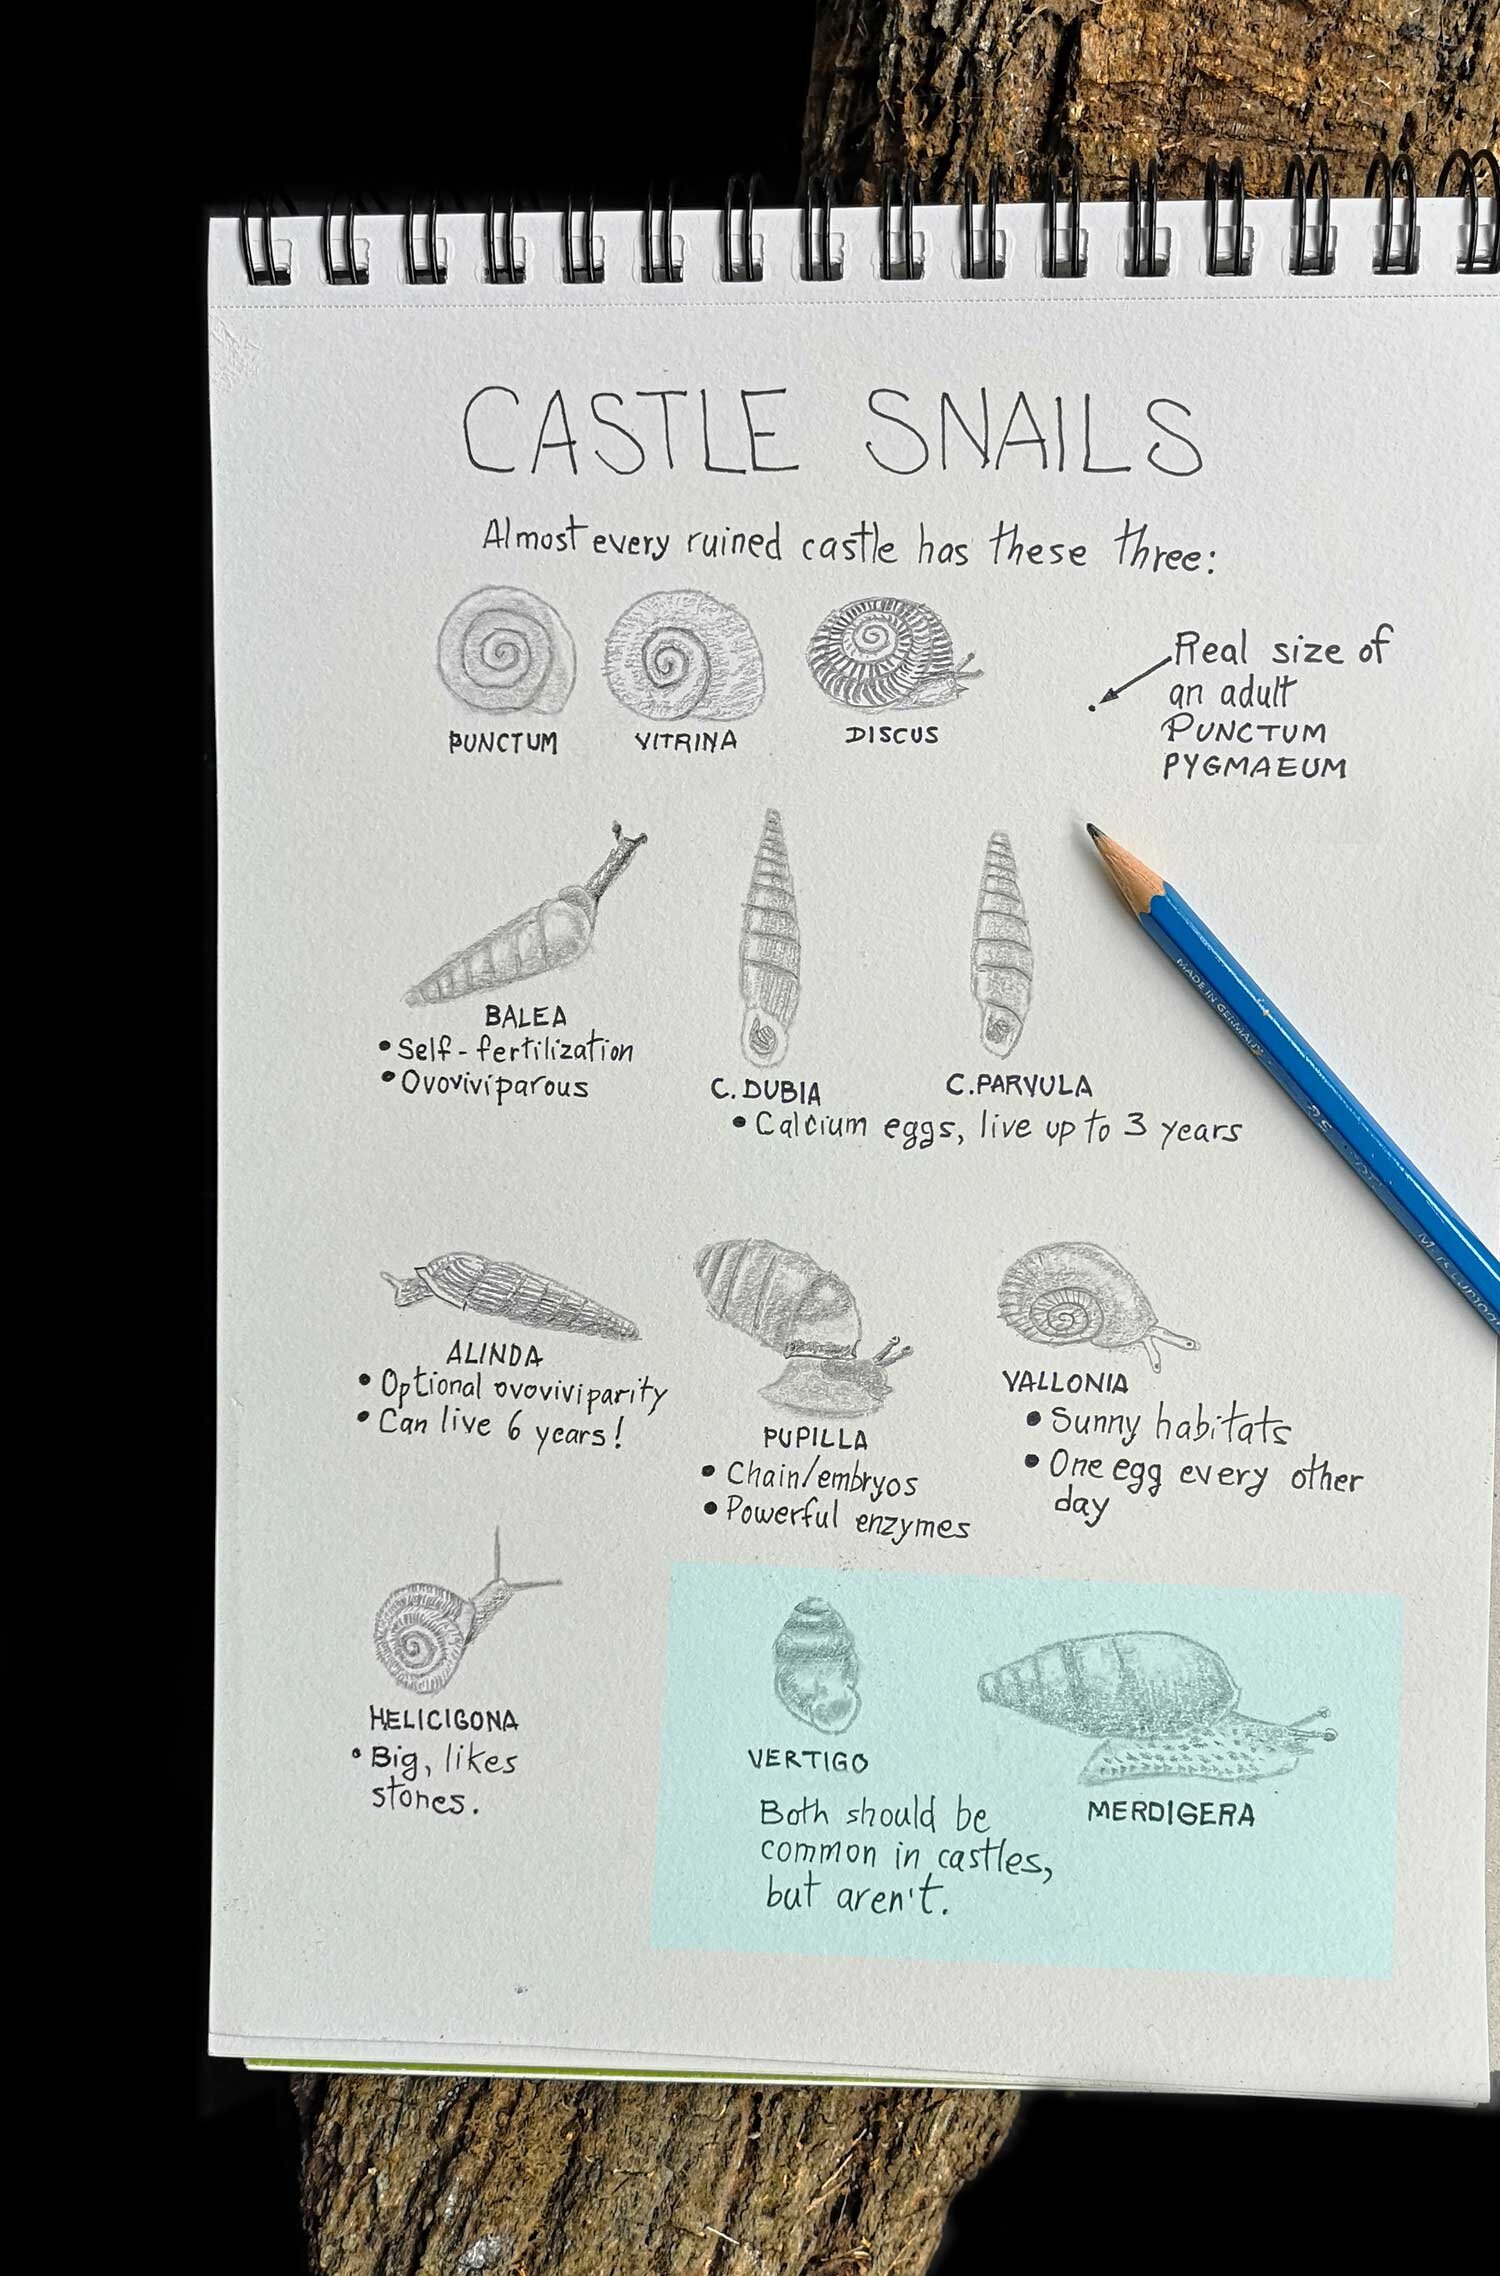 CASTLE SNAILS
Almost every ruined castle has these three:
PUNCTUM
VITRINA
DISCUS
Real size of
an adult
PUNCTUM
PYGMAEUM
BALEA
• Self-fertilization
• Ovoviviparous
C. DUBIA
C. PARVULA
• Calcium eggs, live up to 3 years
MADE IN GERMANY
ALINDA
• Optional ovoviviparity
• Can live 6 years!
PUPILLA
• Chain/embryos
• Powerful enzymes
VALLONIA
• Sunny habitats
• One egg every other
day
HELICIGONA
• Big, likes
stones.
VERTIGO
MERDIGERA
Both should be
common in castles,
but aren't.